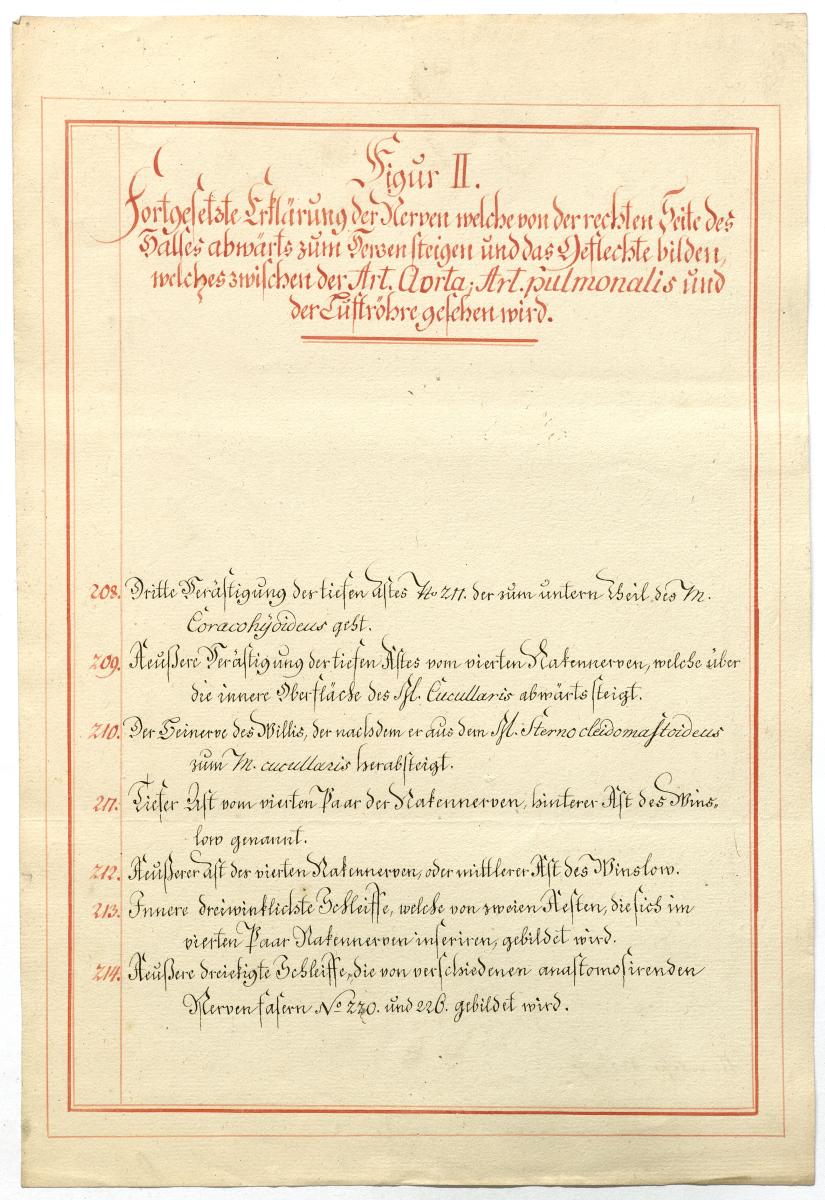 Figur II.
Fortgesetzte Erklärung der Nerven welche von der rechten Seite des
Halses abwärts zum Herzen steigen und das Geflechte bilden,
welches zwischen der Art. Aorta; Art. pulmonalis und
der Luftröhre gesehen wird.
208. Dritte Verästigung des tiefen Astes No 211. der zum untern Theil des M.
Coracohÿoideus geht.
209. Aeußere Verästigung des tiefen Astes vom vierten Nakennerven, welche über
die innere Oberfläche des M. Cucullaris abwärts steigt.
210. Der Beinerve des Willis, der nachdem er aus dem M. Sterno cleidomastoideus
zum M. cucullaris herabsteigt.
211. Tiefer Ast vom vierten Paar der Nakennerven, hinterer Ast des Wins-
low genannt.
212. Aeußerer Ast des vierten Nakennerven, oder mittlerer Ast des Winslow.
213. Innere dreiwinklichte Schleiffe, welche von zweien Aesten, die sich im
vierten Paar Nakennerven inseriren, gebildet wird.
214. Aeußere dreiekigte Schleiffe, die von verschiedenen anastomosirenden
Nervenfasern No 220. und 226. gebildet wird.